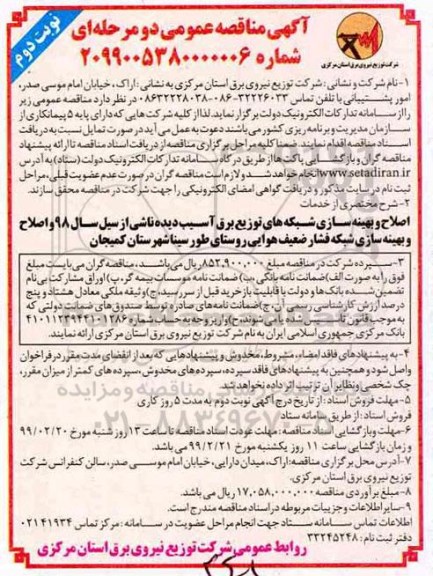 نوبت دوم
آگهی مناقصه عمومی دو مرحله‌ای
شماره ۲۰۹۹۰۰۵۳۸۰۰۰۰۰۰۶
شرکت توزیع نیروی برق استان مرکزی
۱-نام شرکت و نشانی: شرکت توزیع نیروی برق استان مرکزی به نشانی: اراک، خیابان امام موسی صدر،
امور پشتیبانی با تلفن تماس ۳۲۲۲۶۰۳۳-۰۸۶ ۰۸۶۳۲۲۲۸۰۳۸ در نظر دارد مناقصه عمومی زیر
را از سامانه تدارکات الکترونیک دولت برگزار نماید. لذا از کلیه شرکت هایی که دارای پایه ۵ پیمانکاری از
سازمان مدیریت و برنامه ریزی کشور می باشند دعوت به عمل می آید در صورت تمایل نسبت به دریافت
اسناد مناقصه اقدام نمایند. ضمنا کلیه مراحل برگزاری مناقصه از دریافت اسناد مناقصه تا ارائه پیشنهاد
مناقصه گران و بازگشایی پاکت ها از طریق درگاه سامانه تدارکات الکترونیک دولت (ستاد) به آدرس
www.setadiran.ir انجام خواهد شد و لازم است مناقصه گران در صورت عدم عضویت قبلی، مراحل
ثبت نام در سایت مذکور و دریافت گواهی امضای الکترونیکی را جهت شرکت در مناقصه محقق سازند.
۲- شرح مختصری از خدمات:
اصلاح و بهینه سازی شبکه های توزیع برق آسیب دیده ناشی از سیل سال ۹۸ و اصلاح
و بهینه سازی شبکه فشار ضعیف هوایی روستای طور سینا شهرستان کمیجان
۳-سپرده شرکت در مناقصه مبلغ ۸۵۲,۹۰۰,۰۰۰ ریال می باشد، مناقصه گران می بایست مبلغ
فوق را به صورت الف) ضمانت نامه بانکی، ب) ضمانت نامه موسسات بیمه گر، پ) اوراق مشارکت بی نام
تضمین شده بانک ها و دولت با قابلیت باز خرید قبل از سررسید، ج) وثیقه ملکی معادل هشتاد و پنج
درصد ارزش کارشناسی رسمی آن، چ) ضمانت نامه های صادره توسط صندوق های ضمانت دولتی که
بانک مرکزی جمهوری اسلامی ایران به نام شرکت توزیع نیروی برق استان مرکزی ارائه نمایند.
۴- به پیشنهادهای فاقد امضاء، مشروط، مخدوش و پیشنهادهایی که بعد از انقضای مدت مقرر در فراخوان
واصل شود و همچنین به پیشنهادهای فاقد سپرده، سپرده های مخدوش، سپرده های کمتر از میزان مقرر،
چک شخصی و نظایر آن ترتیب اثر داده نخواهد شد.
۵- مهلت فروش اسناد: از تاریخ درج آگهی نوبت دوم به مدت ۵ روز کاری
فروش اسناد: از طریق سامانه ستاد
۶-مهلت و بازگشایی اسناد مناقصه: مهلت عودت اسناد مناقصه تا ساعت ۱۳ روز شنبه مورخ ۹۹/۰۲/۲۰
و زمان بازگشایی ساعت ۱۱ روز یکشنبه مورخ ۹۹/۲/۲۱ می باشد.
۷-آدرس محل برگزاری مناقصه: اراک، میدان دارایی، خیابان امام موسی صدر، سالن کنفرانس شرکت
توزیع نیروی برق استان مرکزی.
۸-مبلغ برآوردی مناقصه ۱۷,۰۵۸,۰۰۰,۰۰۰ ریال می باشد.
۹-سایر اطلاعات و جزییات مربوطه در اسناد مناقصه مندرج است.
اطلاعات تماس سامانه ستاد جهت انجام مراحل عضویت در سامانه: مرکز تماس ۰۲۱۴۱۹۳۴
دفتر ثبت نام: ۳۳۲۴۵۲۴۸
روابط عمومی شرکت توزیع نیروی برق استان مرکزی